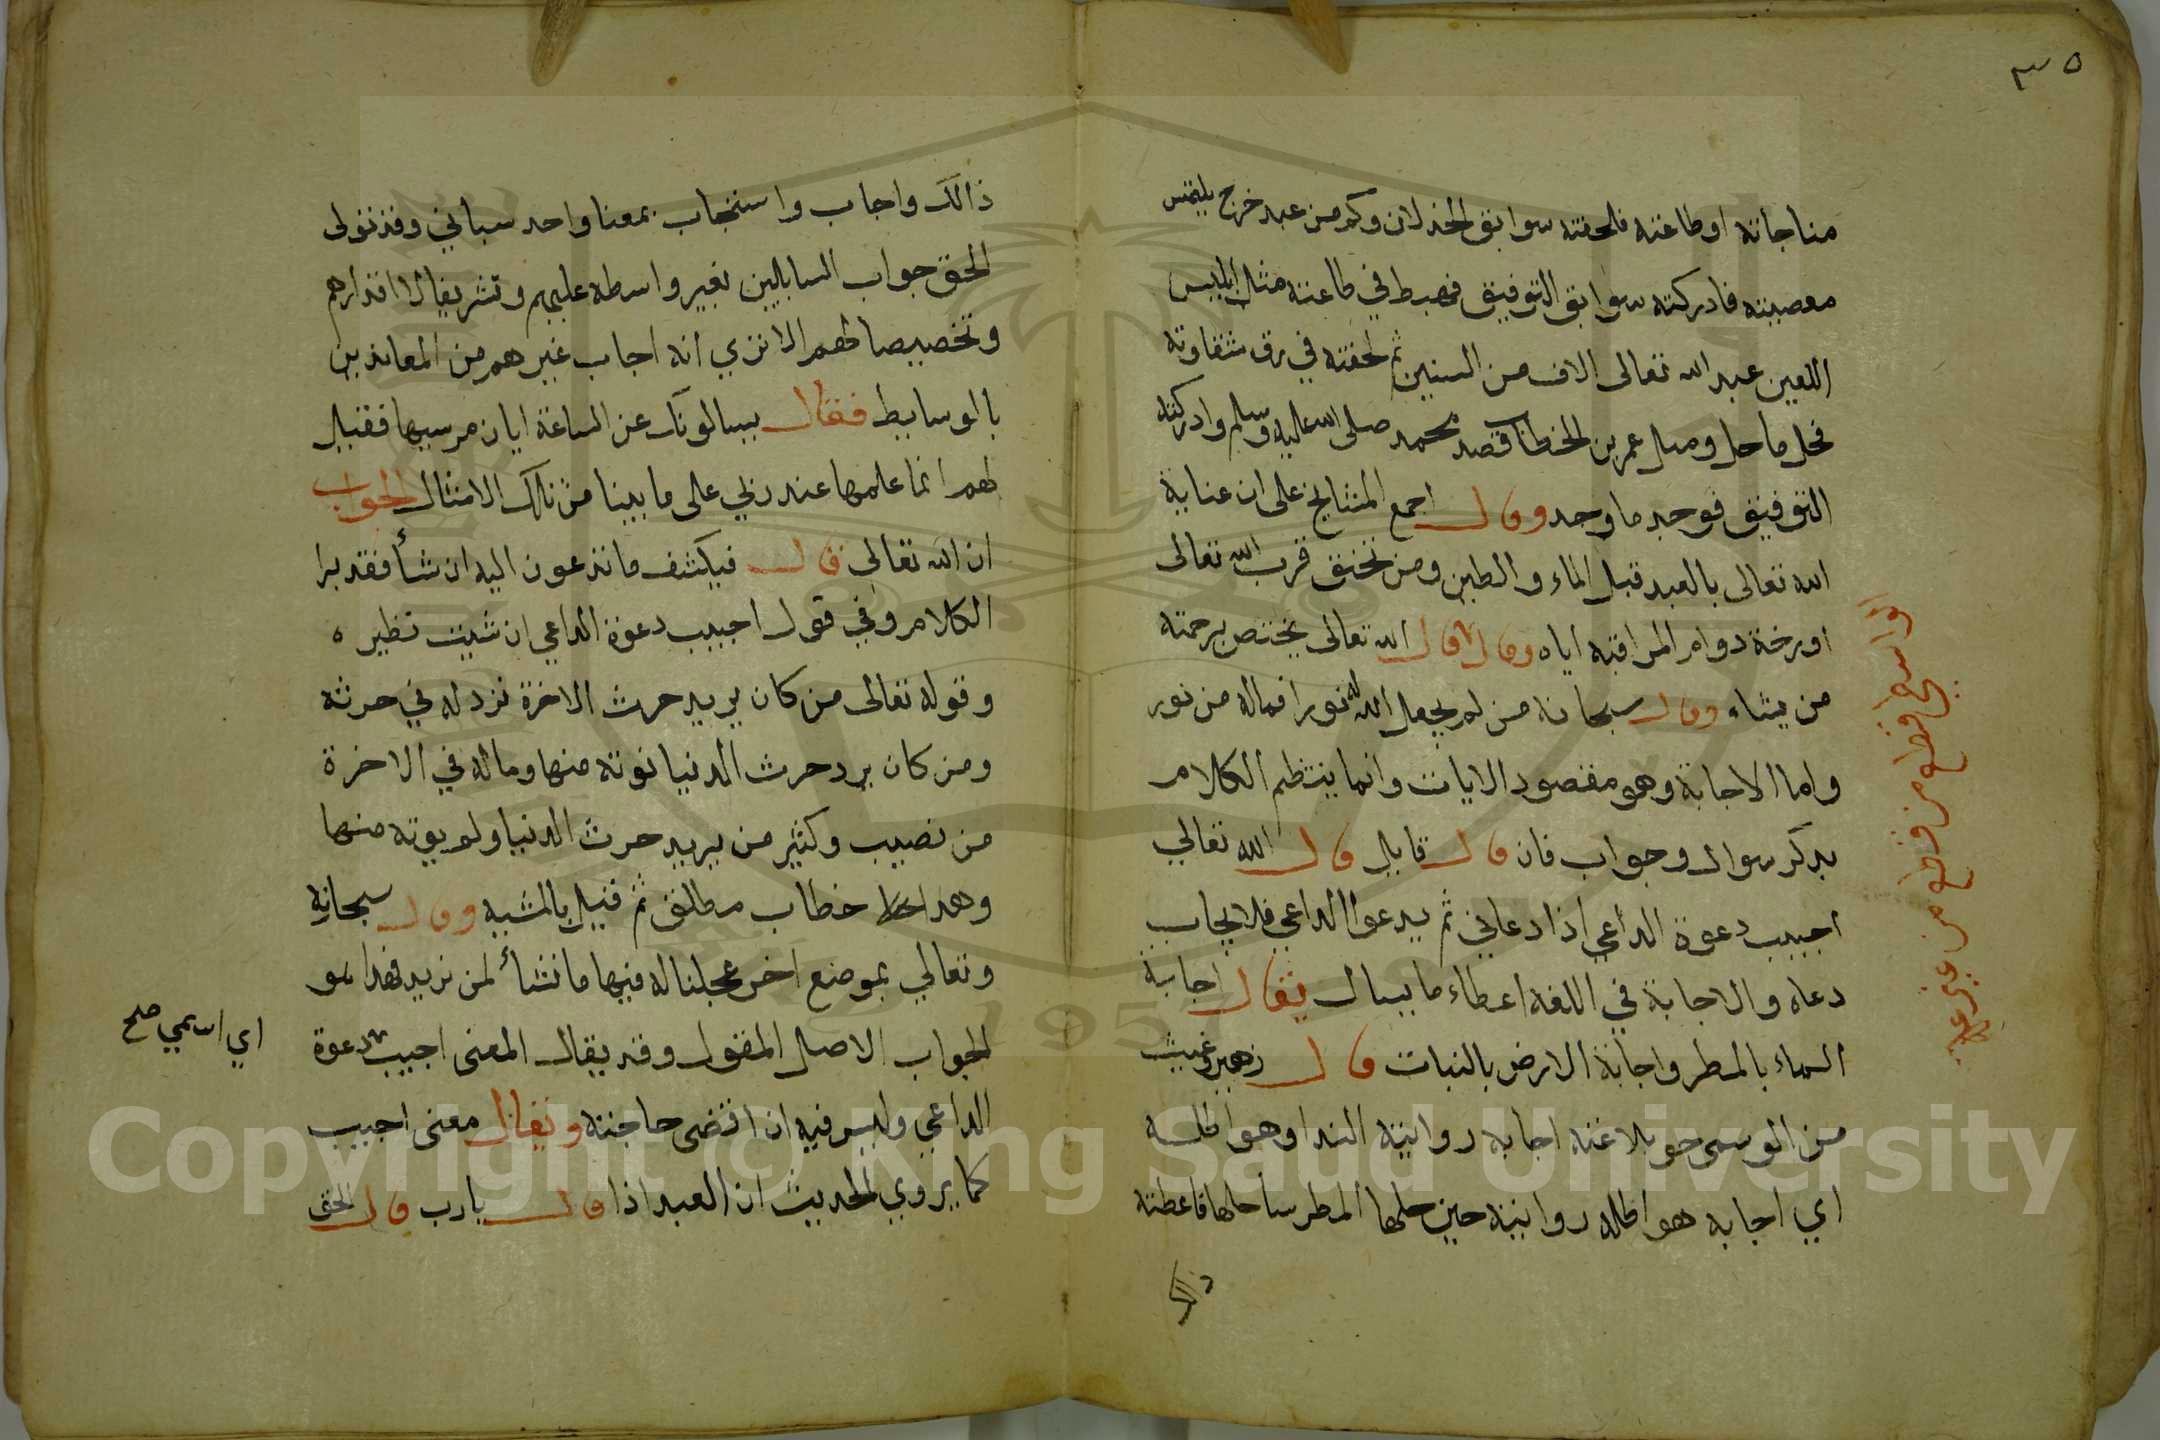 ٣٥
مناجاته او طاعته فلحقته سوابق الخذلان وكم من عبد خرج يلتمس
معصيته فادركته سوابق التوفيق فهبط في طاعته مثال ابليس
اللعين عبد الله تعالى الاف من السنين ثم لحقته في متفاوتة
فحل ما حل ومثل عمر بن الخطاب قصد محمد صلى الله عليه وسلم وادركته
التوفيق فوجد ما وجد وقال اجمع المشايخ على ان عناية
الله تعالى بالعبد قبل الماء والطين ومن تحقق قرب الله تعالى
دوام المراقبة اياه وقال قال الله تعالى يختص برحمته
من يشاء وقال سبحانه من لم يجعل الله له نورا فماله من نور
واما الاجابة وهو مقصود الايات وانما ينتظم الكلام
بذكر سوال وجواب فان قال قايل قال الله تعالي
اجيب دعوة الداعي اذا دعاني ثم يدعوا الداعي فلا يجاب
دعاه والاجابة في اللغة اعطاء ما يسال يقال اجابة
السماء بالمطر واجابة الارض بالنبات قال زهير وغيث
من الوسمى حو تلاعته اجابه روابيه الندا وهواطله
اي اجابه هواطله روابيه حين حلها المطر ساحلها فاعطته
ذالك
ذالك واجاب واستجاب بمعنا واحد سياتي وقد تولى
الحق جواب السايلين بغير واسطه عليهم وتشريفا لاقدارهم
وتخصيصا لهم الا تري انه اجاب غيرهم من المعاندين
بالوسايط فقال يسالونك عن الساعة ايان مرسيها فقيل
لهم انما علمها عند ربي على ما بينا من تلك الامثال الجواب
ان الله تعالى قال فيكشف ما تدعون اليه ان شأ فقدبرا
الكلام وفي قول اجيب دعوة الداعي ان شيت نظيره
وقوله تعالى من كان يريد حرث الاخرة نزد له في حرثه
ومن كان يرد حرث الدنيا نوته منها وماله في الاخرة
من نصيب وكثير من يريد حرث الدنيا ولم يوته منها
وهذا خطاب مطلق ثم قيل بالمشيه وقال سبحانه
وتعالي بموضع اخر عجلنا له فيها ما نشأ لمن نريد فهذا هو
الجواب الاصل المقول وقد يقال المعنى اجيب دعوة
اي اسمي صح
الداعي وليس فيه ان اقضى حاجته ويقال معنى اجيب
كما يروي الحديث ان العبد اذا قال يارب قال الحق
Copyright © King Saud University
1957